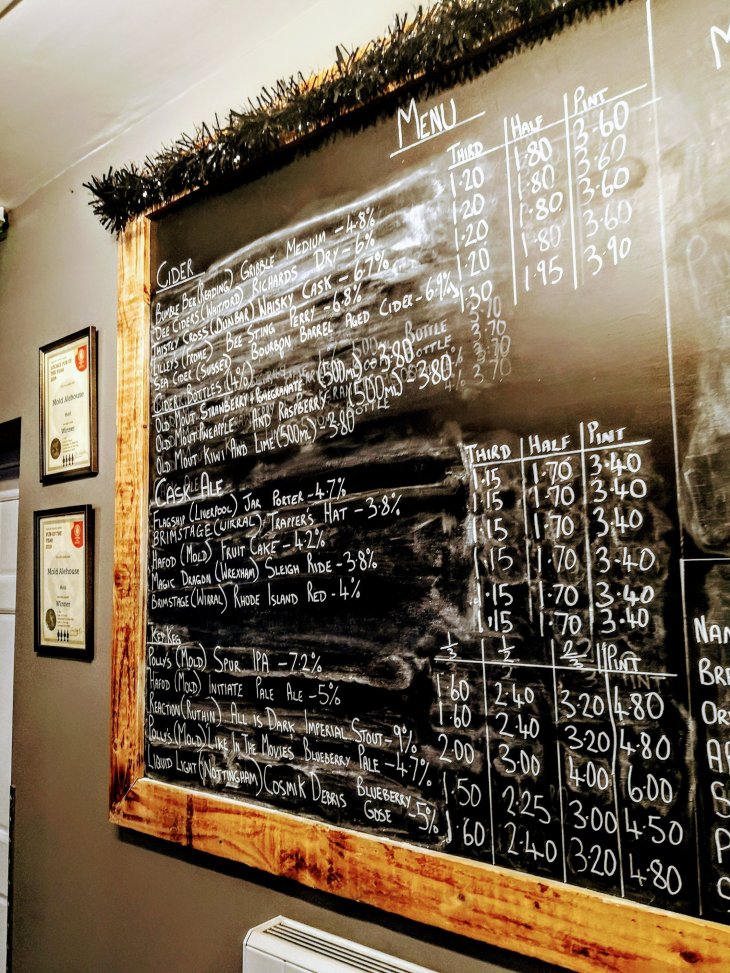 MENU
THIRD HALF PINT
CIDER
BUMBLE BEE (READING) GRIBBLE MEDIUM - 4.8% 1.20 1.80 3.60
DEE CIDERS (WATFORD) RICHARDS DRY - 6% 1.20 1.80 3.60
THISTLY CROSS (DUNBAR) WHISKY CASK - 6.7% 1.20 1.80 3.60
LILLEY'S (FROME) BEE STING PERRY - 6.8% 1.20 1.80 3.60
SEA CIDER (SUSSEX) BOURBON BARREL AGED CIDER - 6.9% 1.30 1.95 3.90
CIDER BOTTLES (4%)
OLD MOUT STRAWBERRY + POMEGRANATE (500ml) - 3.80
OLD MOUT PINEAPPLE AND RASPBERRY (500ml) - 3.80
OLD MOUT KIWI AND LIME (500ml) - 3.80
CASK ALE
THIRD HALF PINT
FLAGSHIP (LIVERPOOL) JAR PORTER - 4.7% 1.15 1.70 3.40
BRIMSTAGE (WIRRAL) TRAPPER'S HAT - 3.8% 1.15 1.70 3.40
HAFOD (MOLD) FRUIT CAKE - 4.2% 1.15 1.70 3.40
MAGIC DRAGON (WREXHAM) SLEIGH RIDE - 3.8% 1.15 1.70 3.40
BRIMSTAGE (WIRRAL) RHODE ISLAND RED - 4% 1.15 1.70 3.40
1.15 1.70 3.40
KEY KEG
1/3 1/2 2/3 PINT
POLLY'S (MOLD) SPUR IPA - 7.2% 1.60 2.40 3.20 4.80
HAFOD (MOLD) INITIATE PALE ALE - 5% 1.60 2.40 3.20 4.80
REACTION (RUTHIN) ALL IS DARK IMPERIAL STOUT - 9% 2.00 3.00 4.00 6.00
POLLY'S (MOLD) LIKE IN THE MOVIES BLUEBERRY PALE - 4.7% 1.50 2.25 3.00 4.50
LIQUID LIGHT (NOTTINGHAM) COSMIK DEBRIS BLUEBERRY GOSE - 5% 1.60 2.40 3.20 4.80
PUB OF THE YEAR
2019
Mold Alehouse
Mold
Winner
Mold Alehouse
Mold
Winner